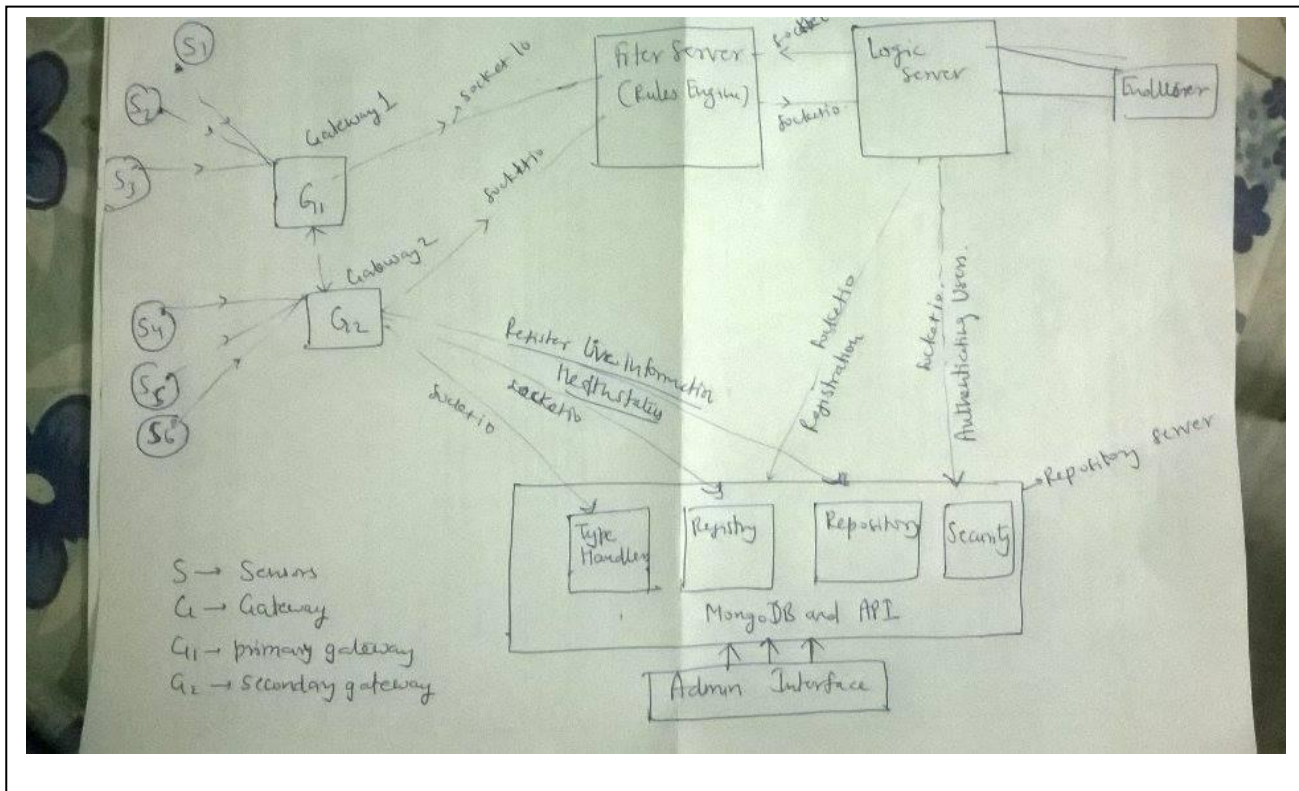 S1
S2
S3
Gateway 1
G1
socket io
Filter Server
(Rules Engine)
socketio
Logic
Server
EndUser
Gateway 2
G2
socketio
S4
S5
S6
Register Live Information
Healthstatus
socketio
socketio
socketio
Registration
socketio.
Authenticating Users.
Repository server
Type
Handler
Registry
Repository
Security
MongoDB and API
Admin Interface
S → Sensors
G → Gateway
G1 → primary gateway
G2 → secondary gateway